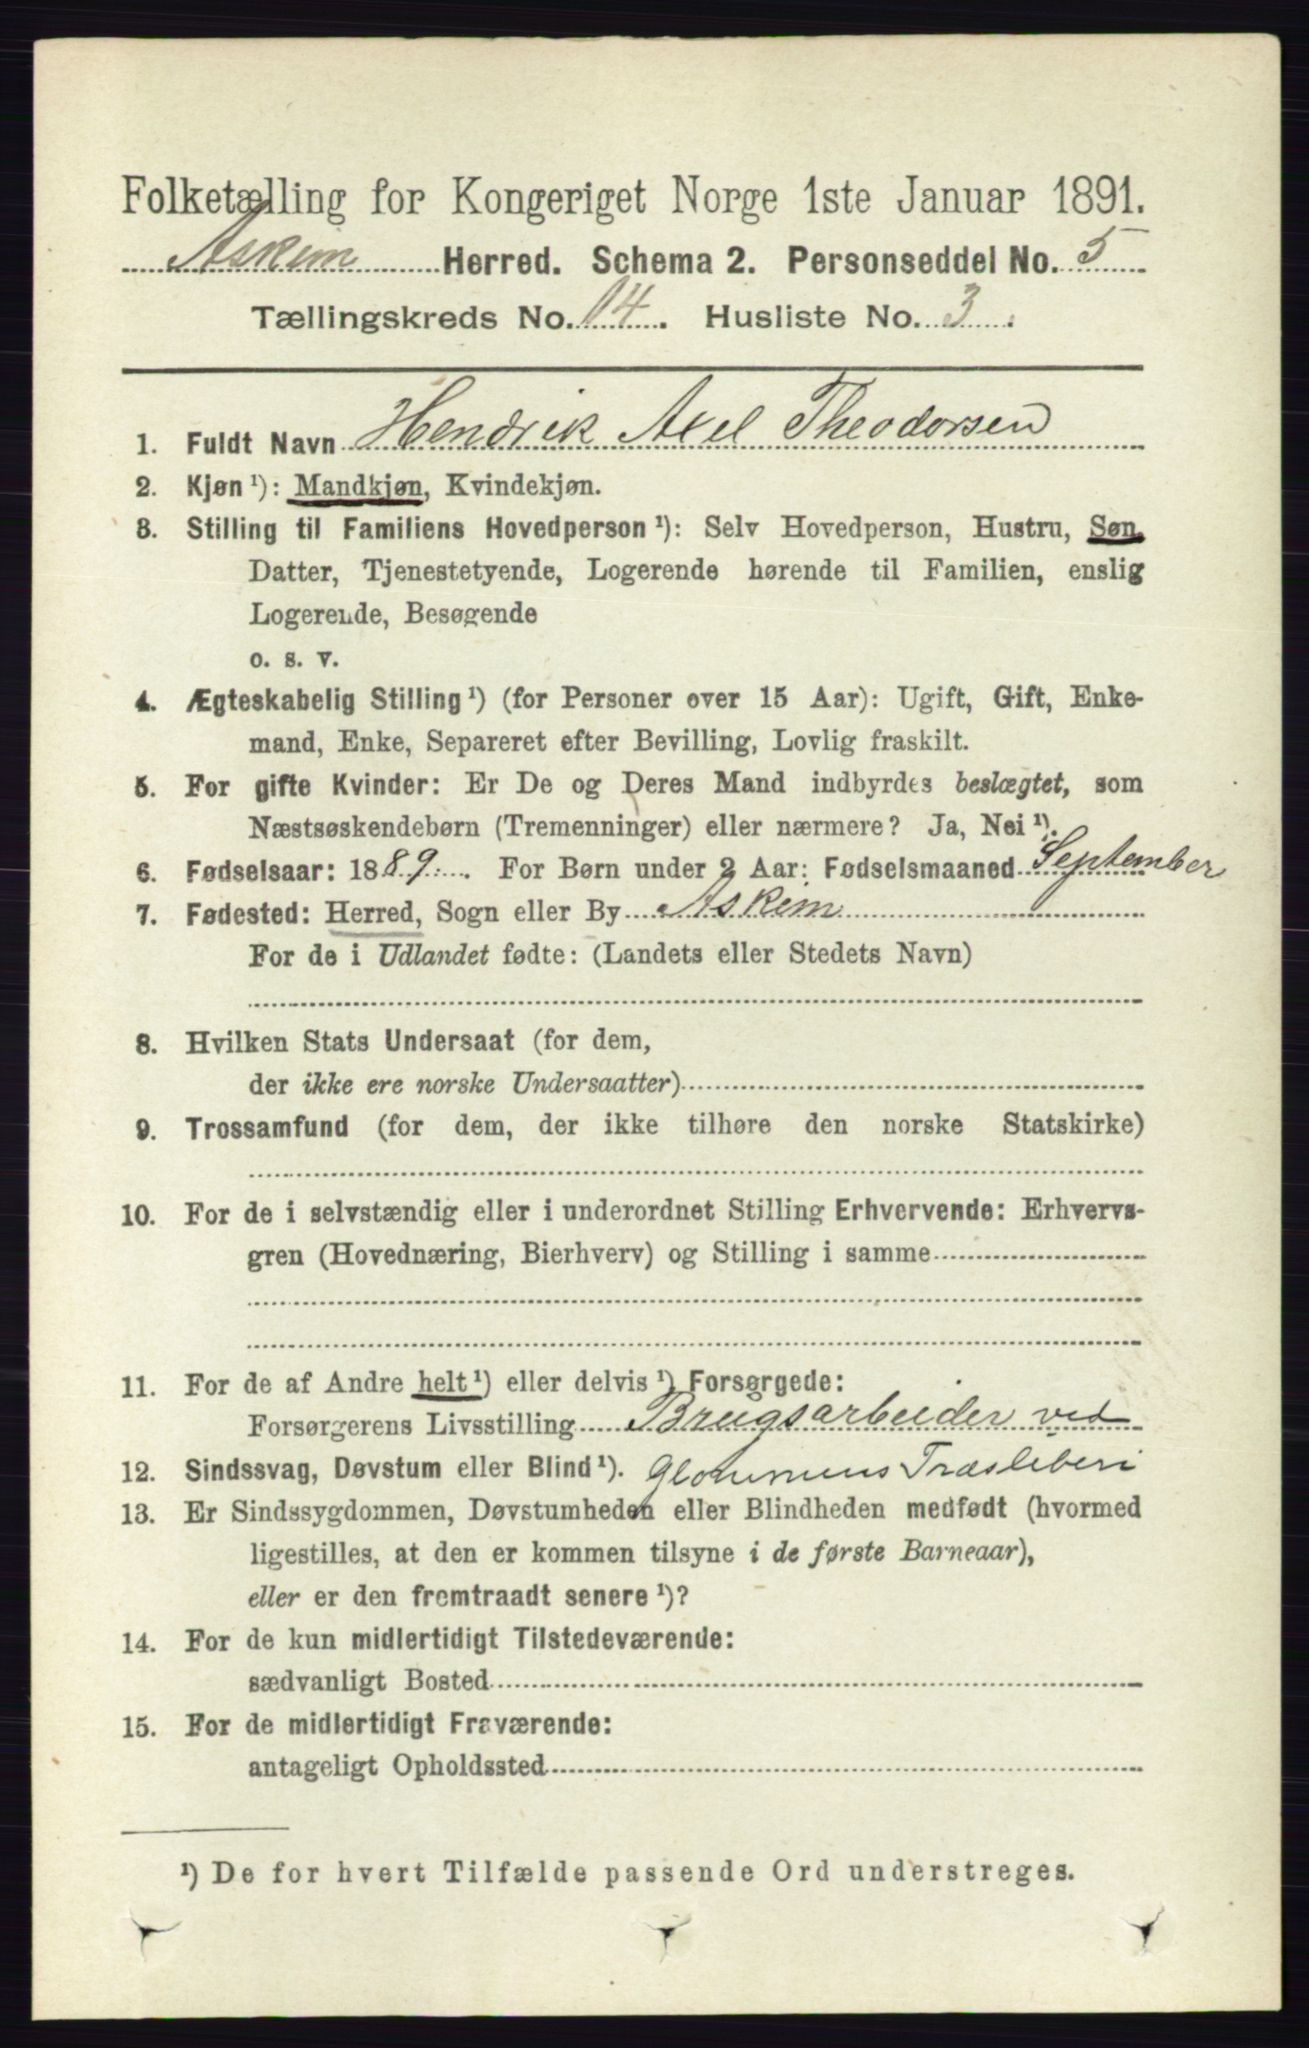 Folketælling for Kongeriget Norge 1ste Januar 1891.
Askim Herred. Schema 2. Personseddel No. 5
Tællingskreds No. 14. Husliste No. 3.
1. Fuldt Navn Hendrik Axel Theodorsen
2. Kjøn ¹): Mandkjøn, Kvindekjøn.
3. Stilling til Familiens Hovedperson ¹): Selv Hovedperson, Hustru, Søn,
Datter, Tjenestetyende, Logerende hørende til Familien, enslig
Logerende, Besøgende
o. s. v.
4. Ægteskabelig Stilling ¹) (for Personer over 15 Aar): Ugift, Gift, Enke-
mand, Enke, Separeret efter Bevilling, Lovlig fraskilt.
5. For gifte Kvinder: Er De og Deres Mand indbyrdes beslægtet, som
Næstsøskendebørn (Tremenninger) eller nærmere? Ja, Nei ¹).
6. Fødselsaar: 1889. For Børn under 2 Aar: Fødselsmaaned September
7. Fødested: Herred, Sogn eller By Askim
For de i Udlandet fødte: (Landets eller Stedets Navn)
8. Hvilken Stats Undersaat (for dem,
der ikke ere norske Undersaatter)
9. Trossamfund (for dem, der ikke tilhøre den norske Statskirke)
10. For de i selvstændig eller i underordnet Stilling Erhvervende: Erhvervs-
gren (Hovednæring, Bierhverv) og Stilling i samme
11. For de af Andre helt ¹) eller delvis ¹) Forsørgede:
Forsørgerens Livsstilling Brugsarbeider ved
12. Sindssvag, Døvstum eller Blind ¹). Glommens Træsliberi
13. Er Sindssygdommen, Døvstumheden eller Blindheden medfødt (hvormed
ligestilles, at den er kommen tilsyne i de første Barneaar),
eller er den fremtraadt senere ¹)?
14. For de kun midlertidigt Tilstedeværende:
sædvanligt Bosted
15. For de midlertidigt Fraværende:
antageligt Opholdssted
¹) De for hvert Tilfælde passende Ord understreges.